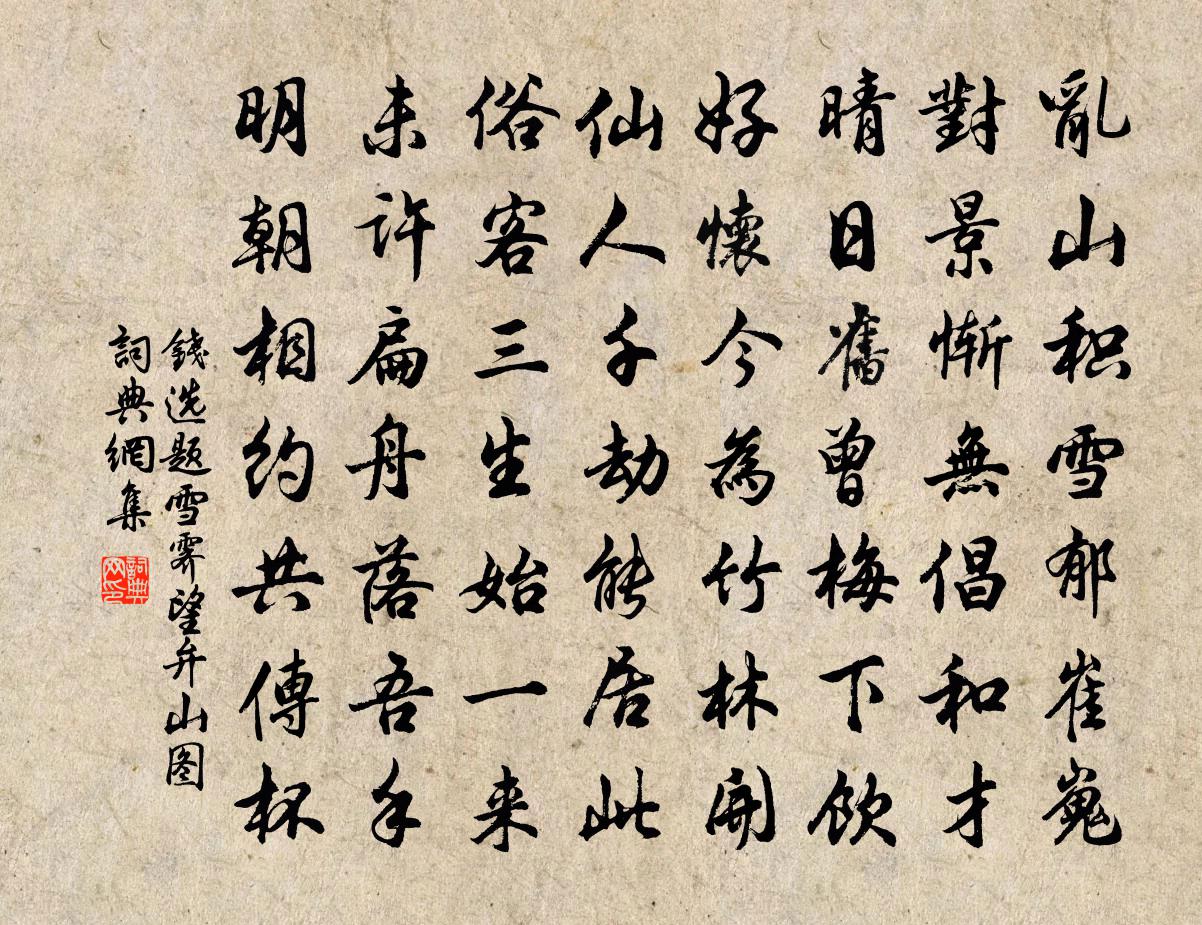 亂山积雪郁崔嵬
對景惭無倡和才
晴日舊曾梅下飲
好懷今為竹林開
仙人千劫能居此
俗客三生始一来
未许扁舟落吾手
明朝相约共傳杯
錢选题雪霽望弁山图
詞典網集
詞典网印